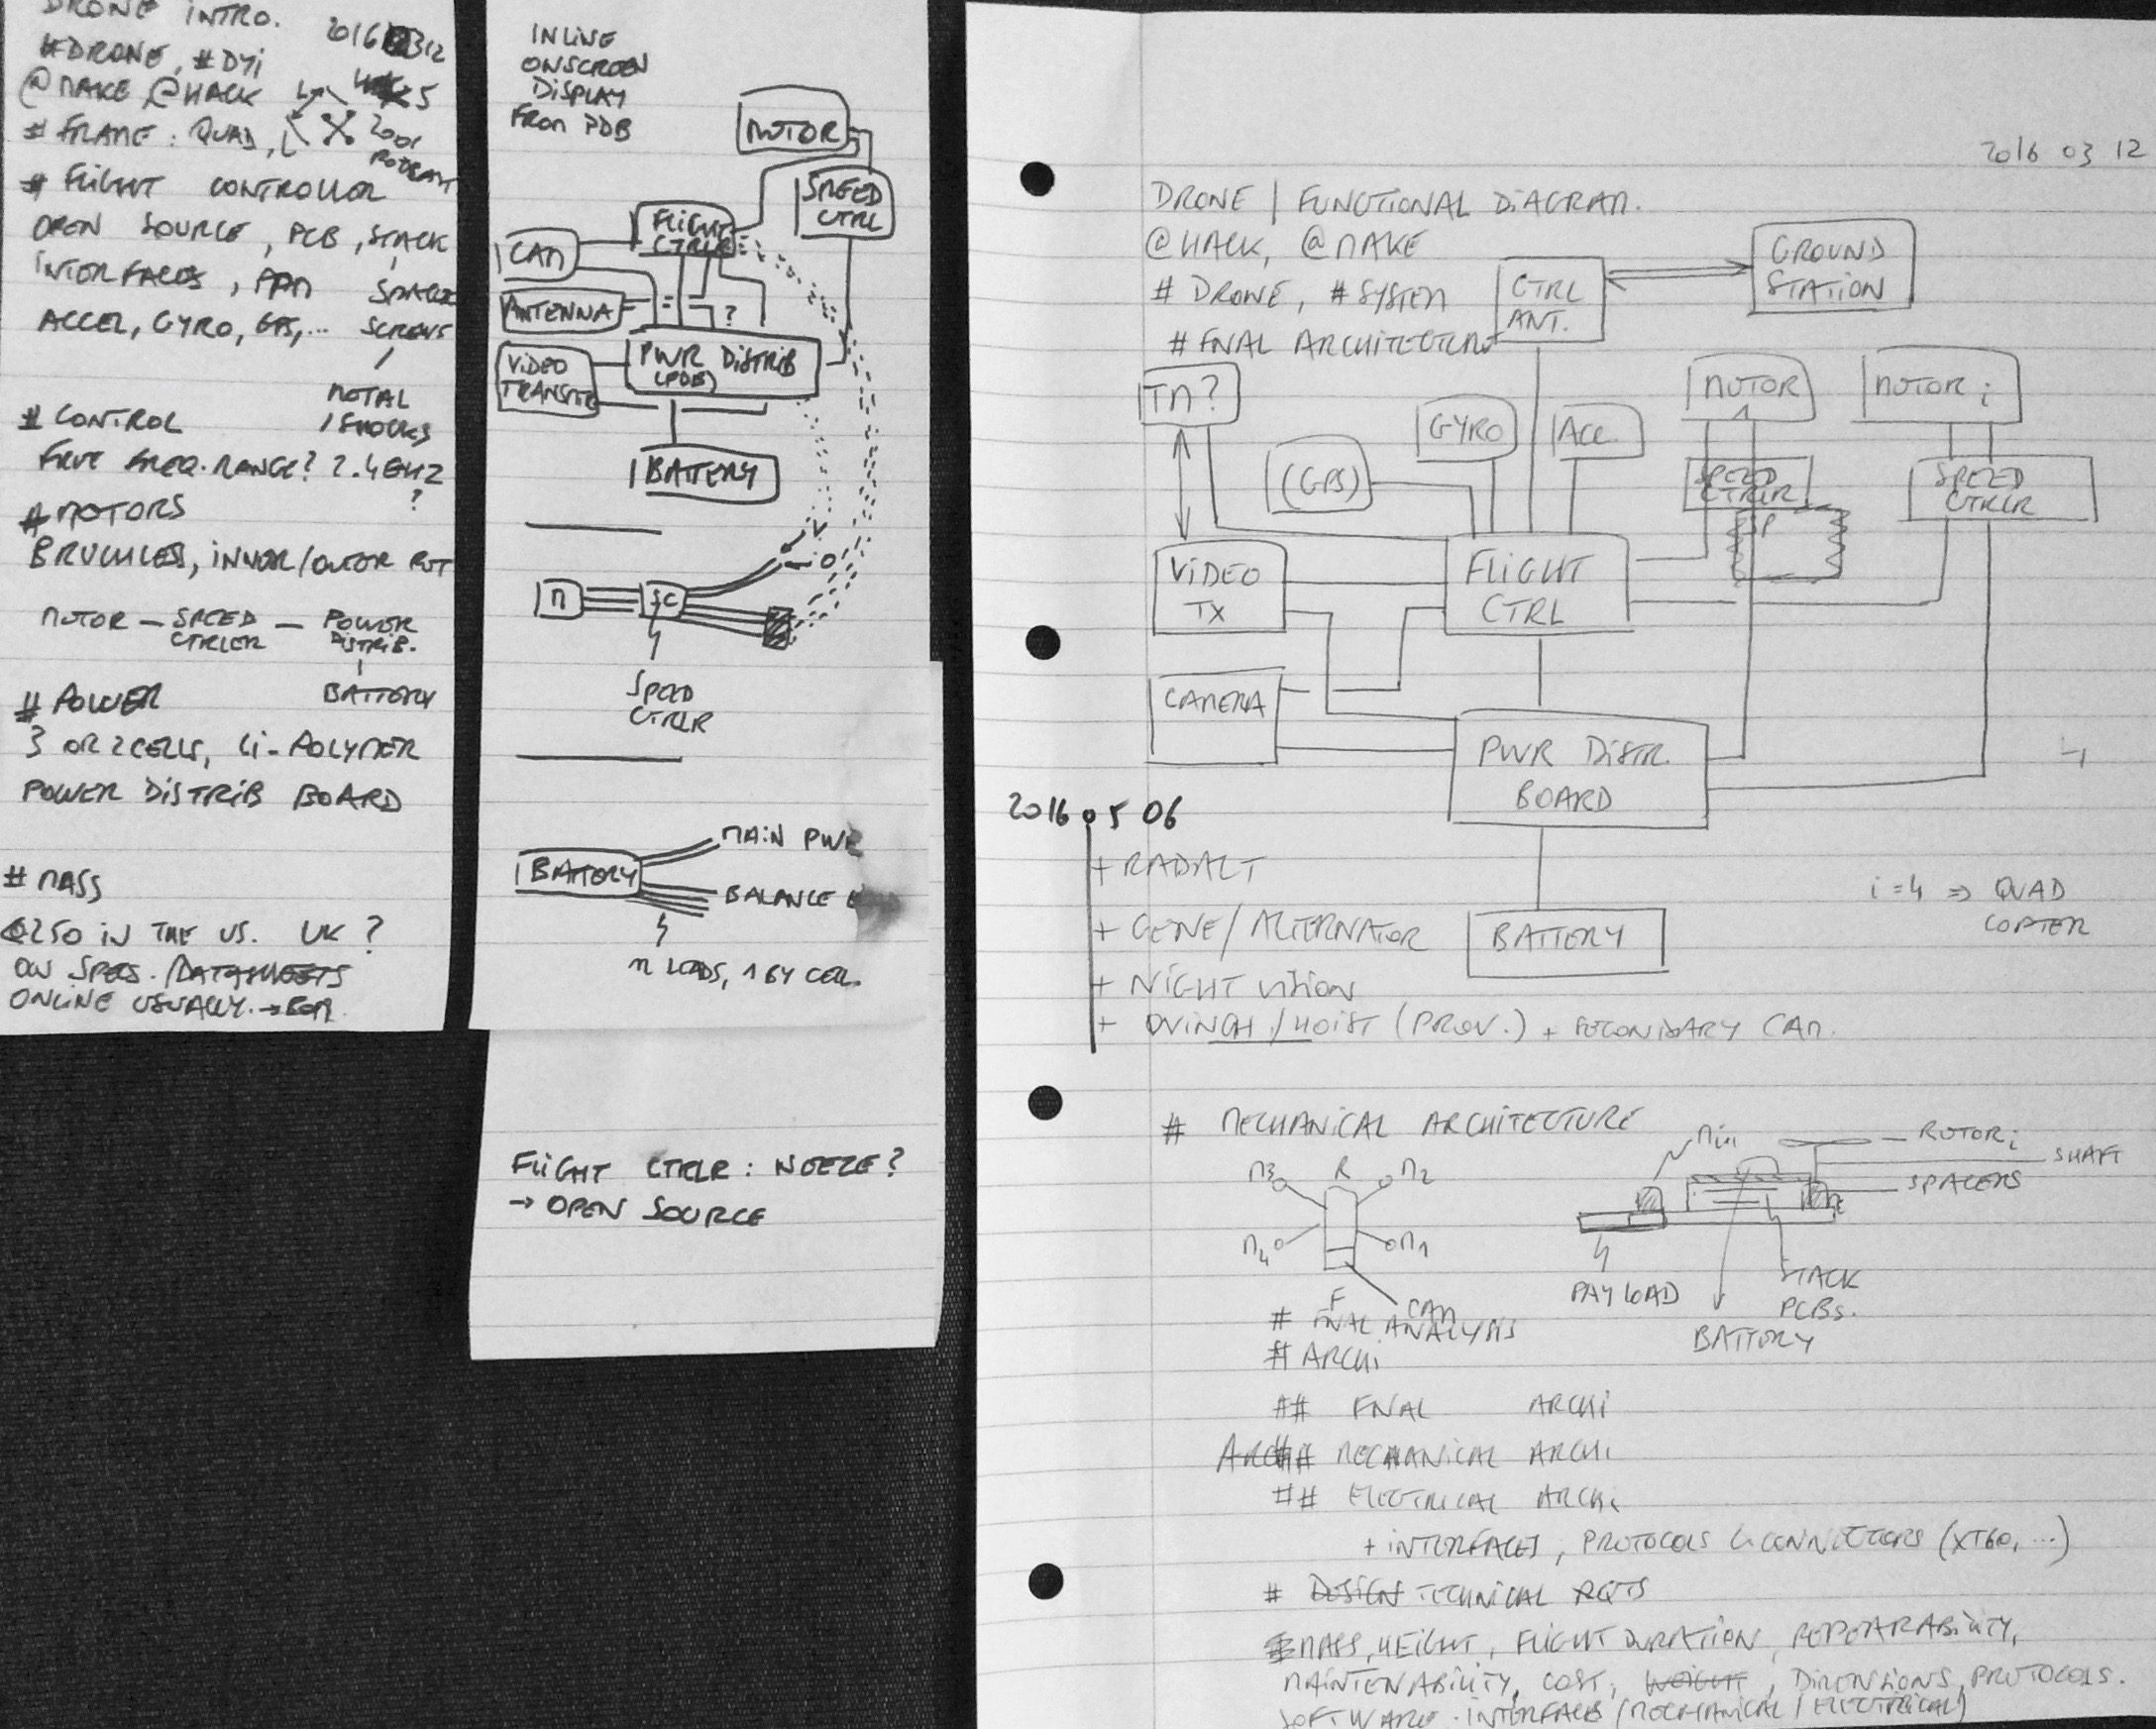 DRONE INTRO.
2016 0312
#DRONE, #DYi
@MAKE @HACK
# FRAME : QUAD,
# FLIGHT CONTROLLOR
OPEN SOURCE, PCB, STACK
INTERFACES, PPM
ACCEL, GYRO, GPS, ...
SCREWS
METAL
/ SHOCKS
# CONTROL
FREE FREQ. RANGE? 2.4GHZ
?
# MOTORS
BRUCHLES, INNER/OUTOR ROT
MOTOR — SPEED CTRLER — POWER DISTRIB.
BATTERY
# POWER
3 OR 2 CELLS, Li-POLYMER
POWER DISTRIB BOARD
# MASS
@250 IN THE US. UK ?
ON SPECS./DATASHEETS
ONLINE USUALLY. → BOM
INLINE
ONSCREEN
DISPLAY
FROM PDB
MOTOR
SPEED
CTRL
FLIGHT
CTRLR
CAM
ANTENNA
?
VIDEO
TRANSMTR
PWR DISTRIB
(PDB)
BATTERY
M
SC
SPEED
CTRLR
BATTERY
MAIN PWR
BALANCE
n LOADS, 1 BY CELL.
FLIGHT CTRLR : NEEZE?
→ OPEN SOURCE
2016 03 12
DRONE | FUNCTIONAL DIAGRAM.
@HACK, @MAKE
# DRONE, # SYSTEM
# FNAL ARCHITECTURE
CTRL
ANT.
GROUND
STATION
TM?
(GPS)
GYRO
ACC.
MOTOR 1
MOTOR i
SPEED
CTRLR
SPEED
CTRLR
SP
VIDEO
TX
FLIGHT
CTRL
CAMERA
PWR DISTR.
BOARD
2016 05 06
+ RADALT
+ GENE/ALTERNATOR
+ NIGHT VISION
+ WINCH / HOIST (PROV.) + SECONDARY CAM.
BATTERY
i=4 ⇒ QUAD
COPTER
# MECHANICAL ARCHITECTURE
M3 R M2
M4 M1
F
CAM
ROTOR i
SHAFT
SPACERS
PAYLOAD
STACK
PCBs.
BATTERY
# FNAL ANALYSIS
# ARCHI
## FNAL ARCHI
## MECHANICAL ARCHI
## ELECTRICAL ARCHI
+ INTERFACES, PROTOCOLS & CONNECTORS (XT60, ...)
# DESIGN TECHNICAL RQTS
MASS, HEIGHT, FLIGHT DURATION, REPEARABILITY,
MAINTENABILITY, COST, WEIGHT, DIMENSIONS, PROTOCOLS.
SOFTWARE. INTERFACES (MECHANICAL / ELECTRICAL)